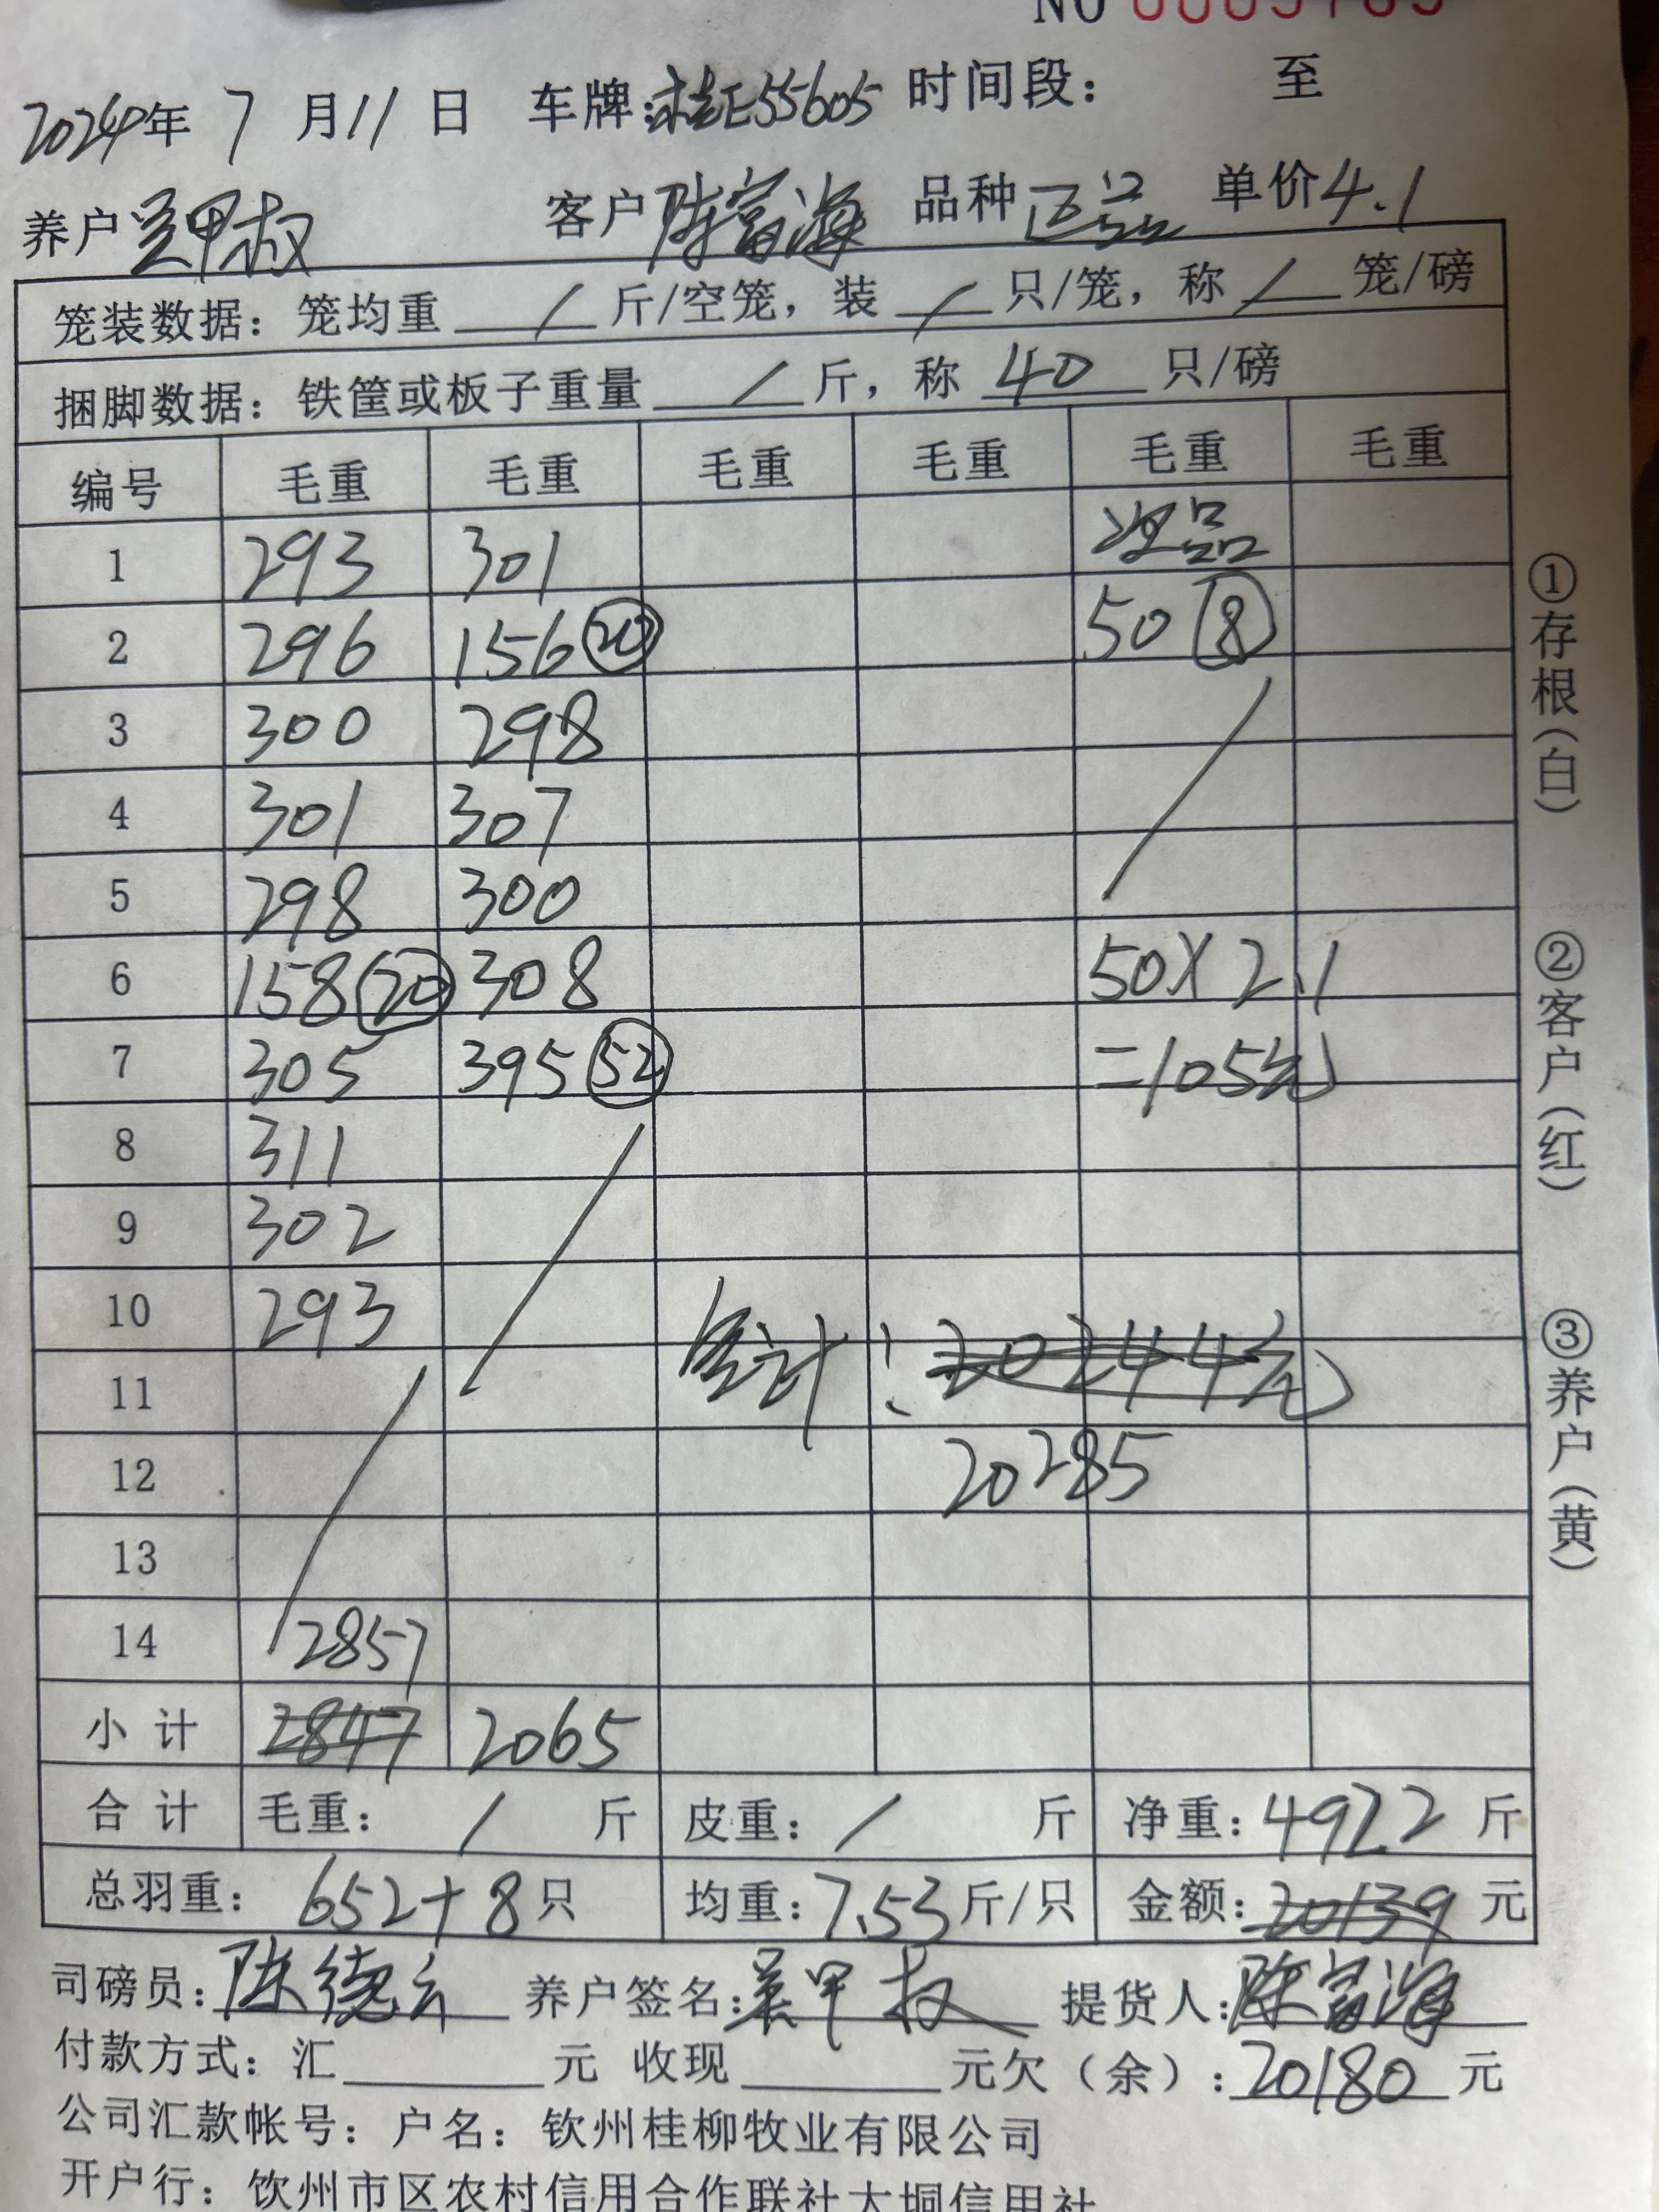 NO
2024年 7 月 11 日 车牌:桂E55605 时间段: 至
养户 吴甲权 客户 陈富海 品种 正品 单价 4.1
笼装数据: 笼均重 / 斤/空笼, 装 / 只/笼, 称 / 笼/磅
捆脚数据: 铁筐或板子重量 / 斤, 称 40 只/磅
编号 毛重 毛重 毛重 毛重 毛重 毛重
1 293 301 次品
2 296 156 20 50 8
3 300 298
4 301 307
5 298 300
6 158 20 308 50X2.1
7 305 395 52 =105元
8 311
9 302
10 293
11 合计: 20244元
12 20285
13
14 2857
小计 2847 2065
合计 毛重: / 斤 皮重: / 斤 净重: 4922 斤
总羽重: 652+8 只 均重: 7.53 斤/只 金额: 20139 元
司磅员: 陈德云 养户签名: 吴甲权 提货人: 陈富海
付款方式: 汇 元 收现 元欠(余): 20180 元
公司汇款帐号: 户名: 钦州桂柳牧业有限公司
开户行: 钦州市区农村信用合作联社大垌信用社
①存根(白)
②客户(红)
③养户(黄)